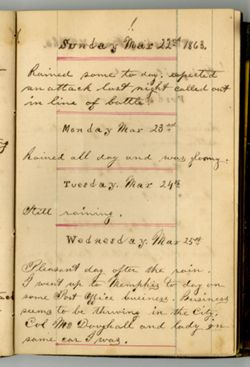 Sunday Mar 22nd 1863.
Rained some to day. expected
an attack last night called out
in line of battle
Monday Mar 23rd
Rained all day and was gloomy.
Tuesday, Mar 24th
Still raining.
Wednesday, Mar 25th
Pleasant day after the rain.
I went up to Memphis to day on
some Post Office business. Business
seems to be thriving in the City.
Col. Mc and lady in
same car I was.